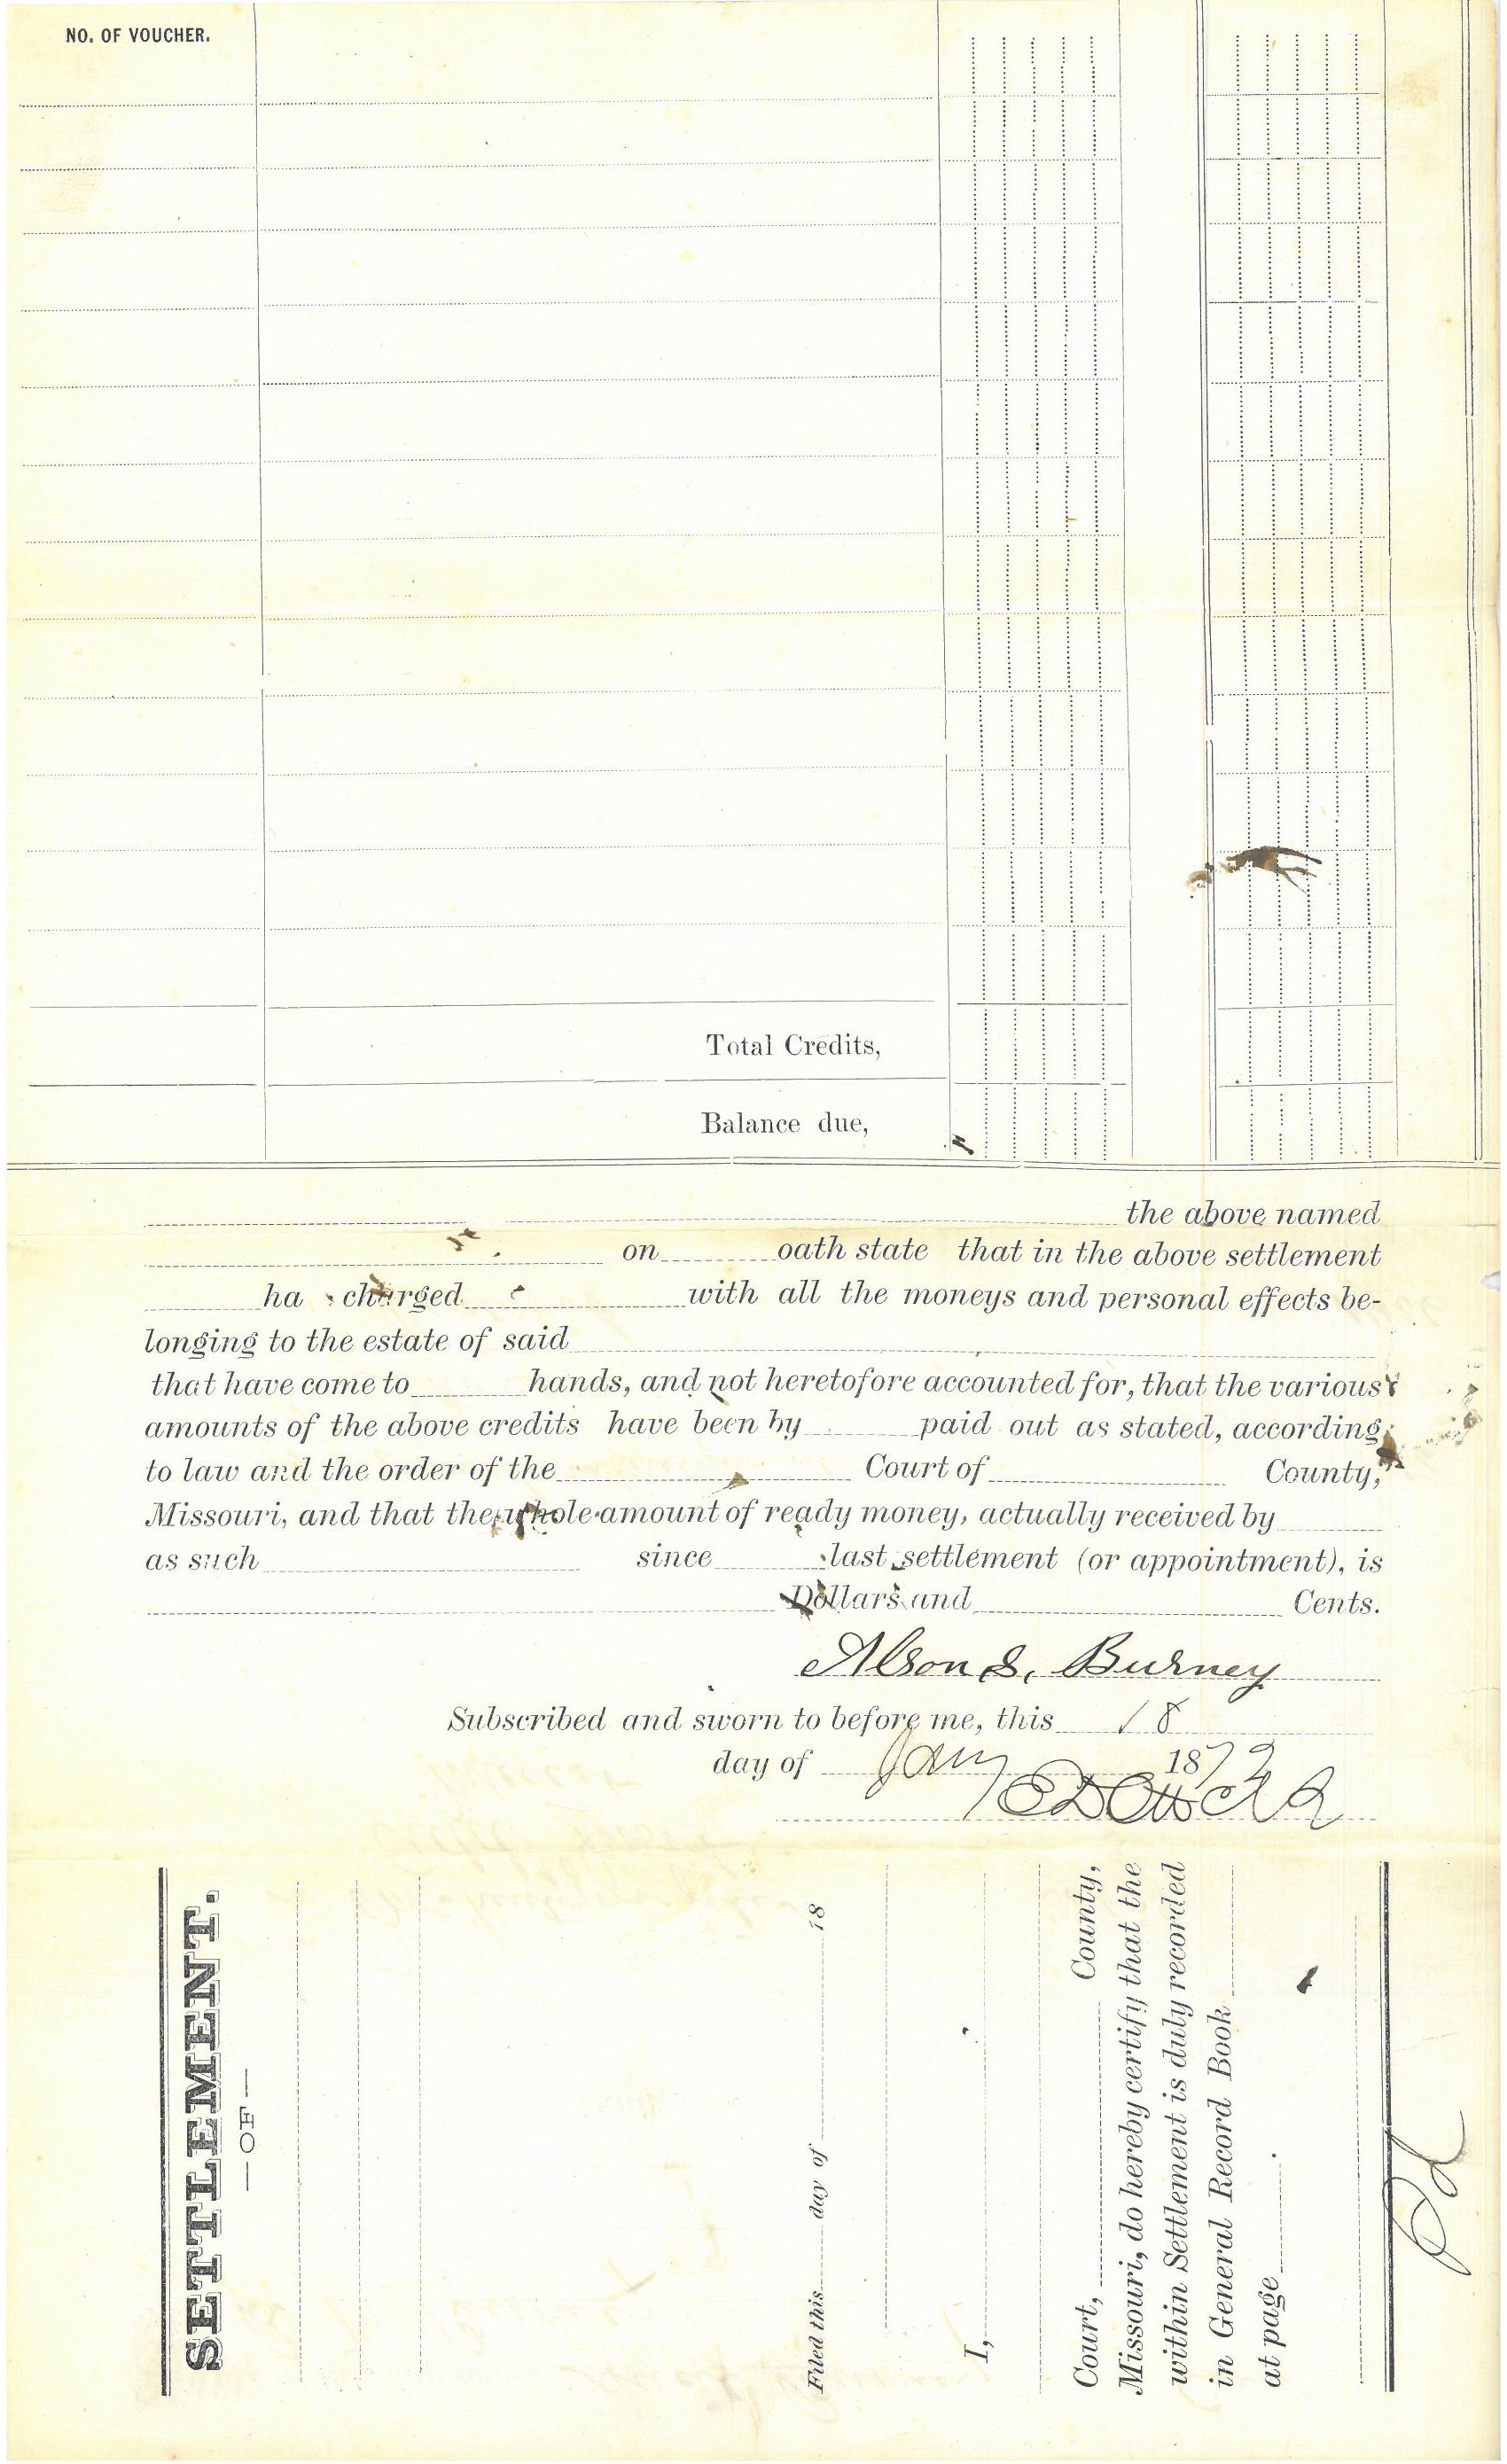 NO. OF VOUCHER.
Total Credits,
Balance due,
the above named
on oath state that in the above settlement
ha charged with all the moneys and personal effects be-
longing to the estate of said
that have come to hands, and not heretofore accounted for, that the various
amounts of the above credits have been by paid out as stated, according
to law and the order of the Court of County,
Missouri, and that the whole amount of ready money, actually received by
as such since last settlement (or appointment), is
Dollars and Cents.
Alson S. Burney
Subscribed and sworn to before me, this 18
day of Jany 1872
SETTLEMENT.
— OF —
Filed this day of 18
I,
Court, County,
Missouri, do hereby certify that the
within Settlement is duly recorded
in General Record Book
at page
Pd